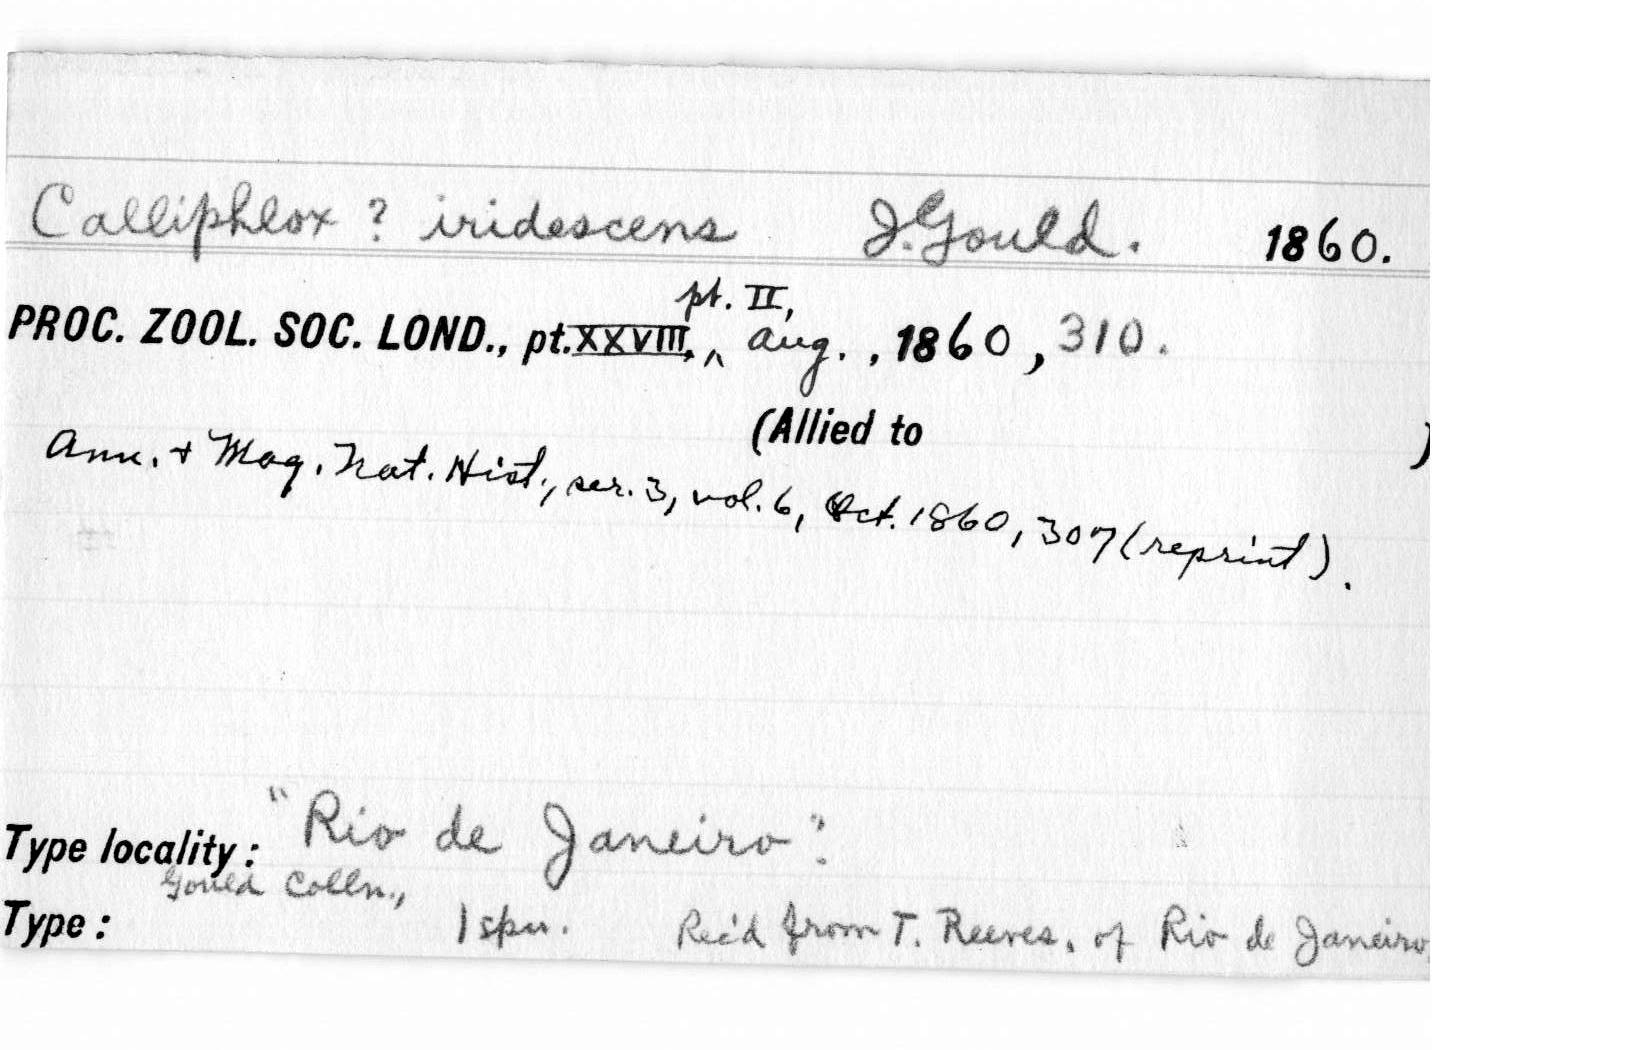 Calliphlox ? iridescens J. Gould. 1860.
pt. II,
PROC. ZOOL. SOC. LOND., pt. XXVIII, ^ Aug. , 1860 , 310.
(Allied to )
Ann. + Mag. Nat. Hist., ser. 3, vol. 6, Oct. 1860, 307 (reprint).
Type locality: "Rio de Janeiro?
Gould Colln.,
Type: 1 spn. Rec'd from T. Reeves, of Rio de Janeiro